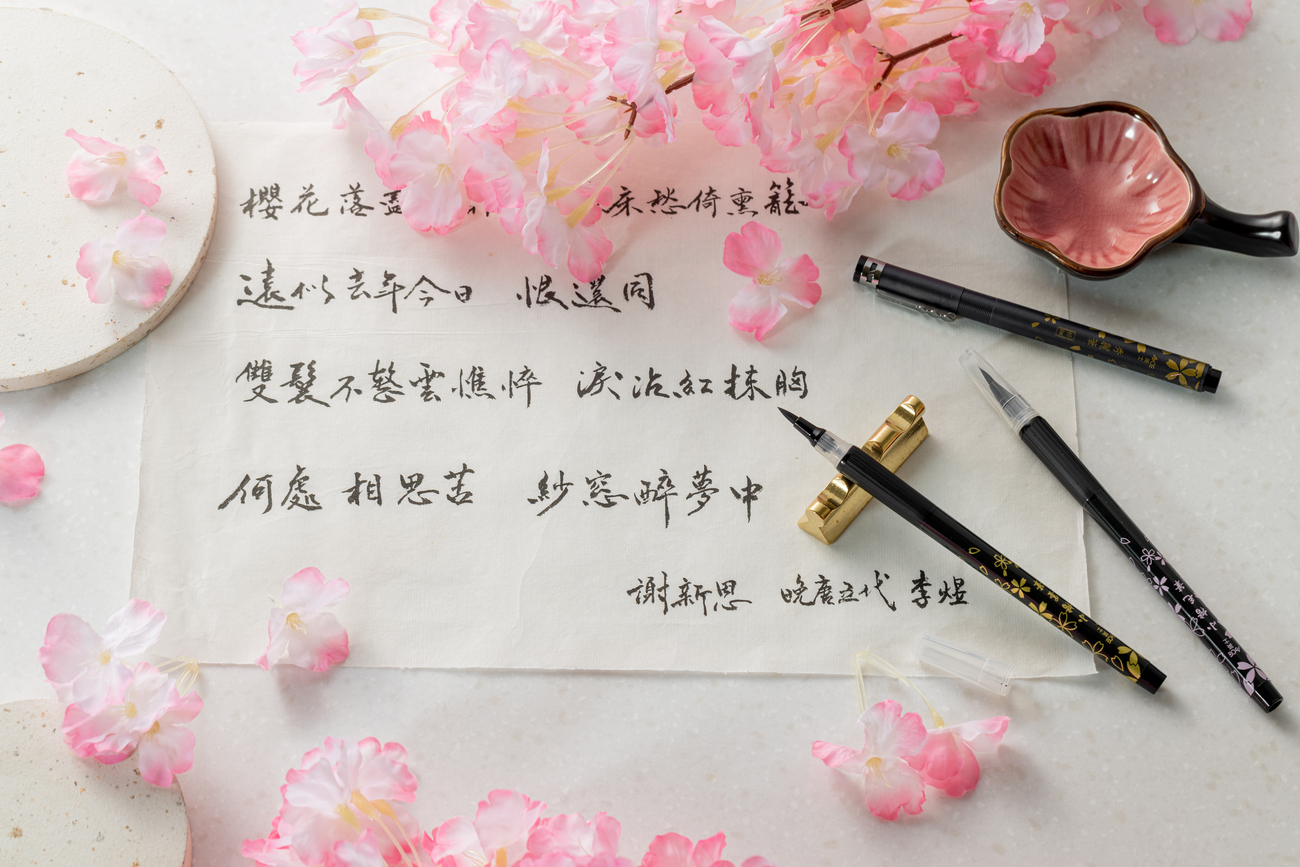 櫻花落盡 床愁倚熏籠
遠似去年今日 恨還同
雙鬟不整雲憔悴 淚沾紅抹胸
何處相思苦 紗窗醉夢中
謝新恩 晚唐五代 李煜